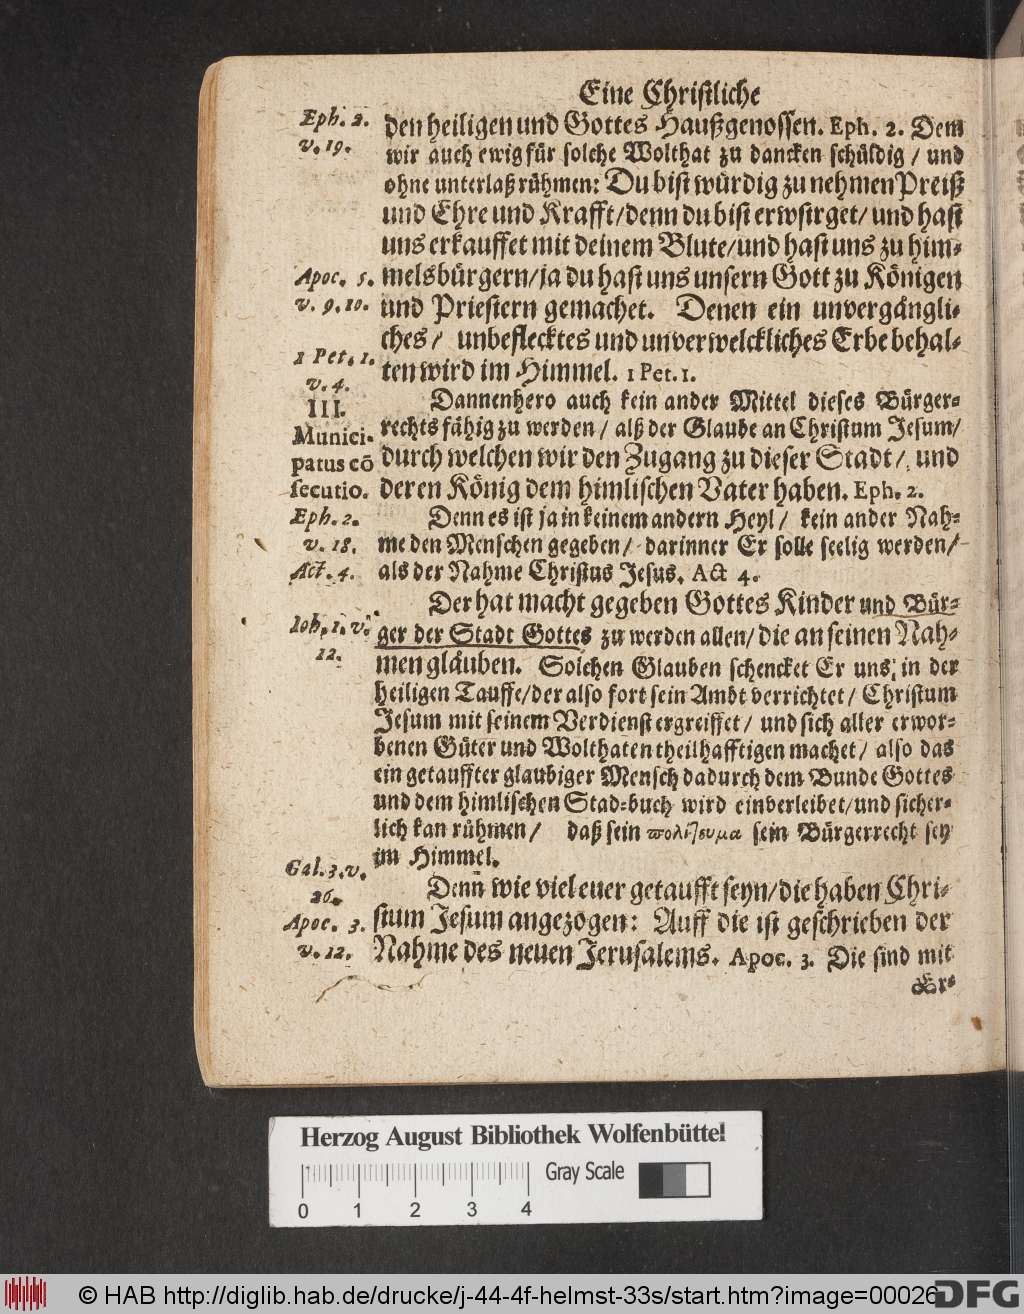 Eine Christliche
Eph. 2.
v. 19.
den heiligen und Gottes Haußgenossen. Eph. 2. Dem
wir auch ewig für solche Wolthat zu dancken schüldig / und
ohne unterlaß rühmen: Du bist würdig zu nehmen Preiß
und Ehre und Krafft / denn du bist erwürget / und hast
uns erkauffet mit deinem Blute / und hast uns zu him⸗
Apoc. 5.
v. 9. 10.
melsbürgern / ja du hast uns unsern Gott zu Königen
und Priestern gemachet. Denen ein unvergängli⸗
ches / unbeflecktes und unverwelckliches Erbe behal⸗
1 Pet. 1.
v. 4.
ten wird im Himmel. 1 Pet. 1.
III.
Munici-
patus cõ
secutio.
Dannenhero auch kein ander Mittel dieses Bürger⸗
rechts fähig zu werden / alß der Glaube an Christum Jesum /
durch welchen wir den Zugang zu dieser Stadt / und
deren König dem himlischen Vater haben. Eph. 2.
Eph. 2.
v. 18.
Act. 4.
Denn es ist ja in keinem andern Heyl / kein ander Nah⸗
me den Menschen gegeben / darinner Er solle seelig werden /
als der Nahme Christus Jesus. Act 4.
Ioh. 1. v.
12.
Der hat macht gegeben Gottes Kinder und Bür⸗
ger der Stadt Gottes zu werden allen / die an seinen Nah⸗
men gläuben. Solchen Glauben schencket Er uns in der
heiligen Tauffe / der also fort sein Ambt verrichtet / Christum
Jesum mit seinem Verdienst ergreiffet / und sich aller erwor⸗
benen Güter und Wolthaten theilhafftigen machet / also das
ein getauffter glaubiger Mensch dadurch dem Bunde Gottes
und dem himlischen Stad⸗buch wird einverleibet / und sicher⸗
lich kan rühmen / daß sein πολίτευμα sein Bürgerrecht sey
im Himmel.
Gal. 3. v.
26.
Apoc. 3.
v. 12.
Denn wie viel euer getaufft seyn / die haben Chri⸗
stum Jesum angezogen: Auff die ist geschrieben der
Nahme des neuen Jerusalems. Apoc. 3. Die sind mit
Er⸗
Herzog August Bibliothek Wolfenbüttel
Gray Scale
0 1 2 3 4
© HAB http://diglib.hab.de/drucke/j-44-4f-helmst-33s/start.htm?image=00026
DFG